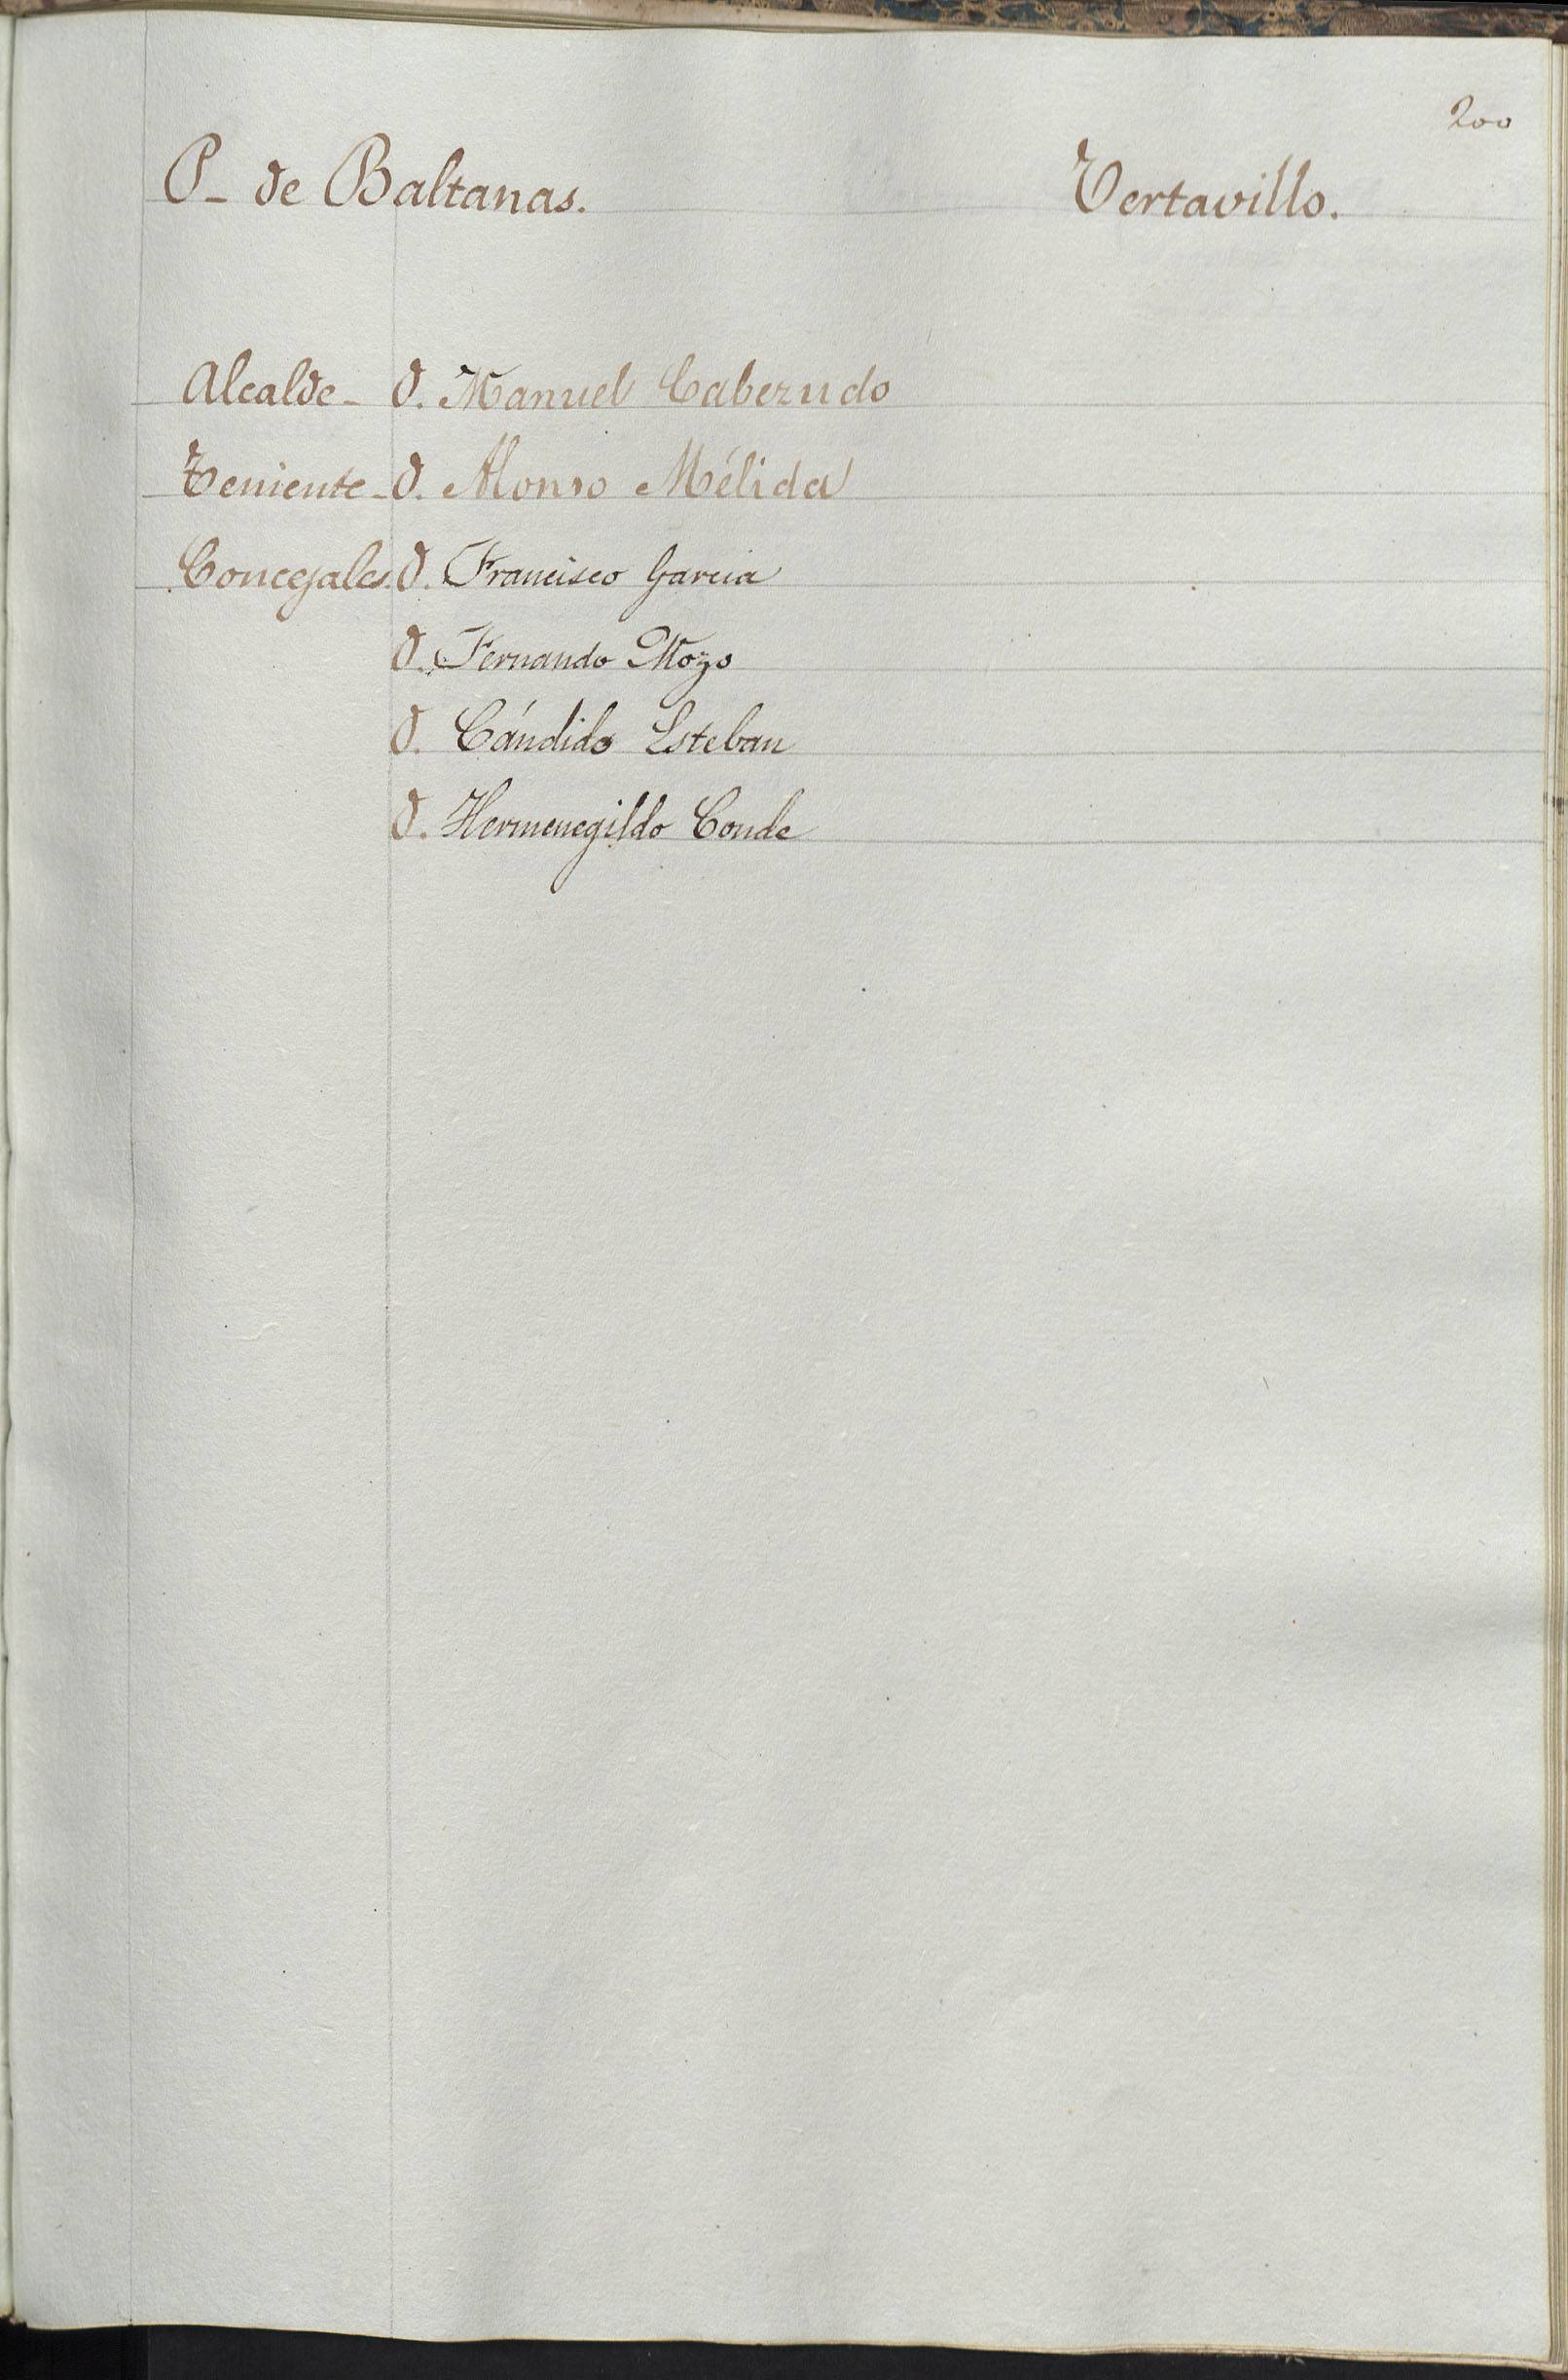 200
P- de Baltanas. Tertavillo.
Alcalde- D. Manuel Cabezudo
Teniente- D. Alonso Mélida
Concegales. D. Francisco Garcia
D. Fernando Mozo
D. Cándido Esteban
D. Hermenegildo Conde